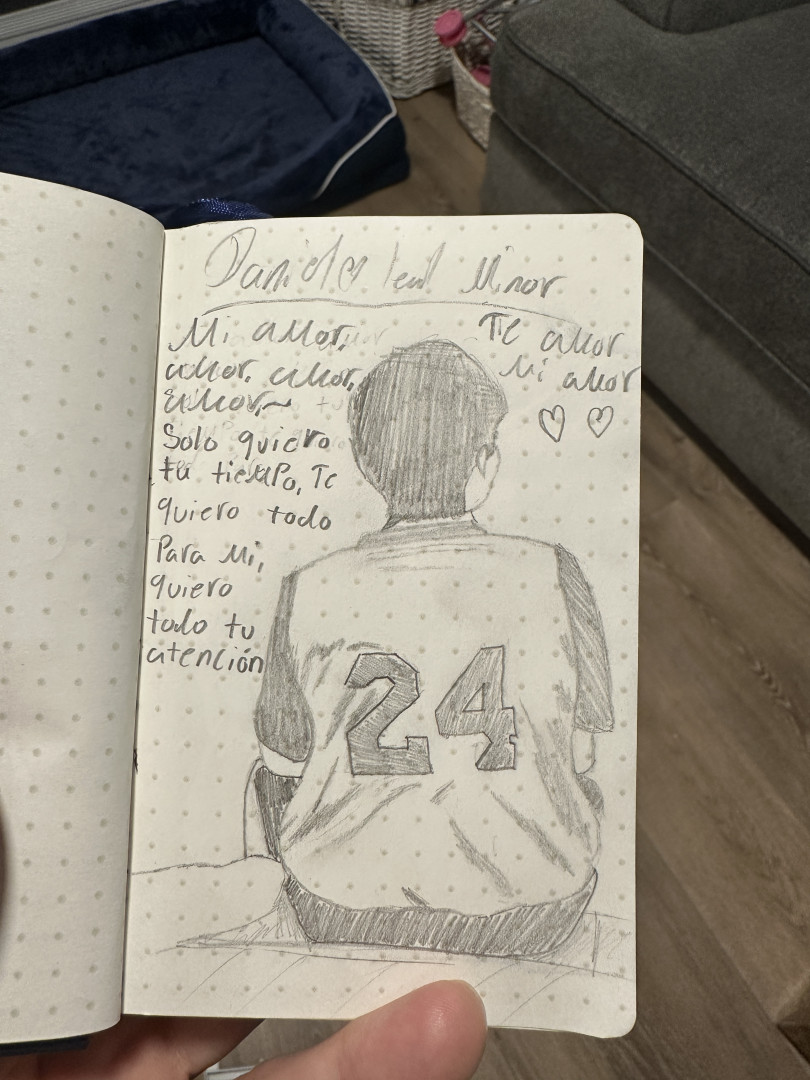 Daniel Leal Minor
Mi amor,
amor, amor,
amor,~
Solo quiero
tu tiempo, Te
quiero todo
Para Mi,
quiero
todo tu
atención
Te amor
Mi amor
24